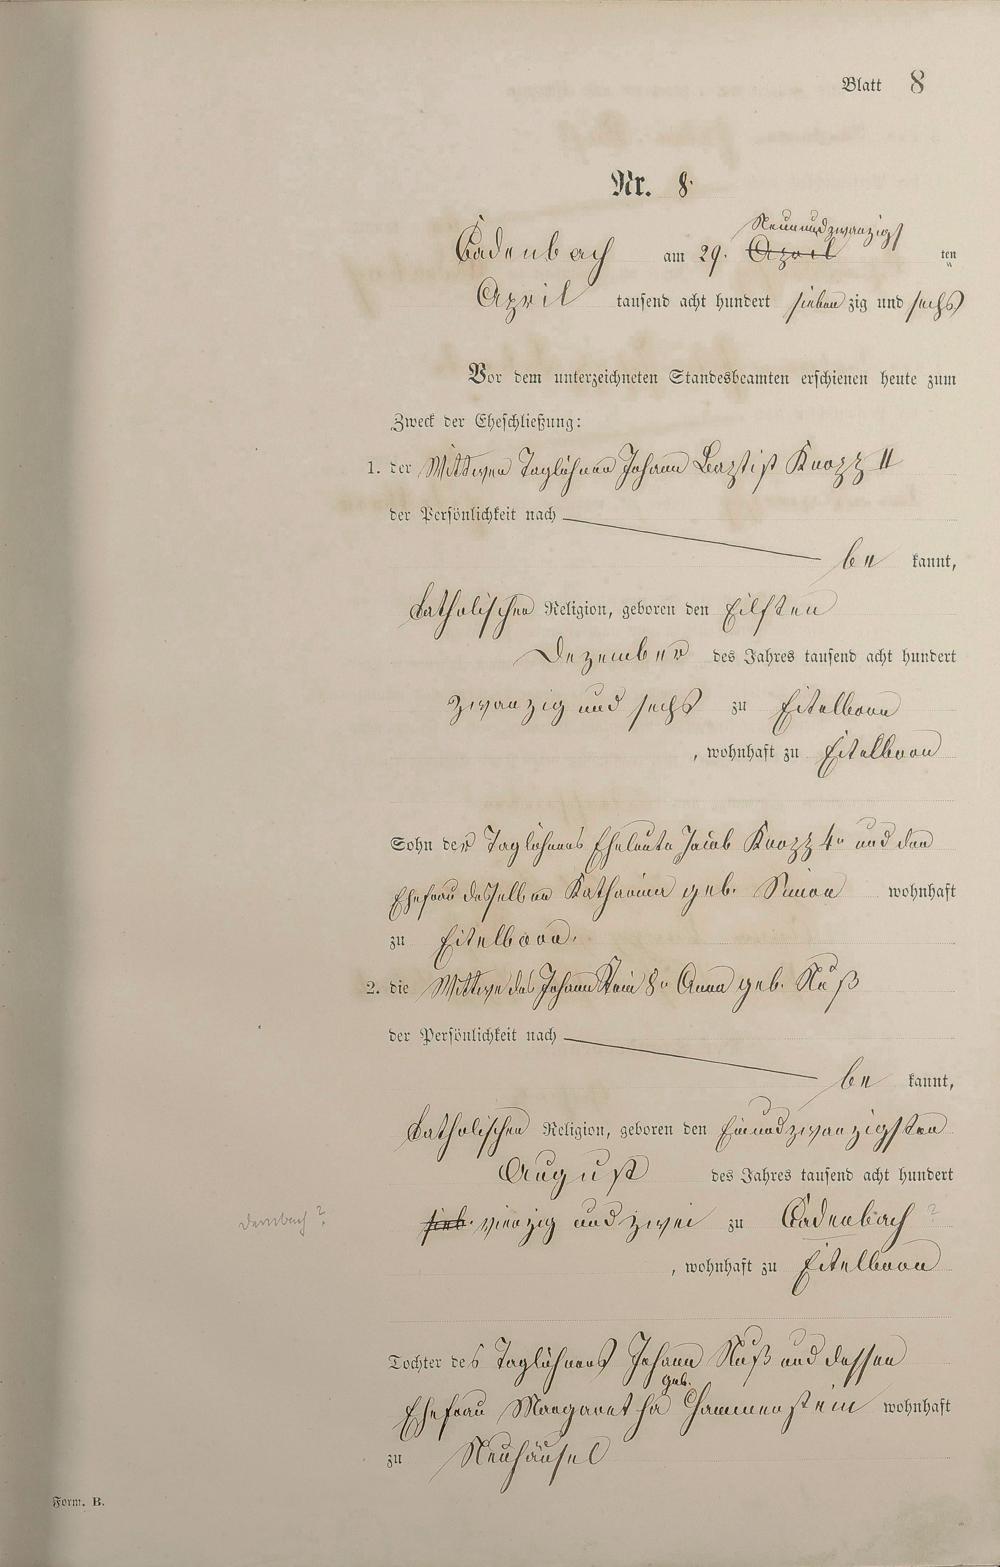 Blatt 8
Nr. 8.
Cadenbach am 29. April Neunundzwanzigs ten
April tausend acht hundert sieben zig und sechs
Vor dem unterzeichneten Standesbeamten erschienen heute zum
Zweck der Eheschließung:
1. der Wittwer Taglöhner Johann Baptist Knopp II
der Persönlichkeit nach
be kannt,
katholischer Religion, geboren den Eilften
Dezember des Jahres tausend acht hundert
zwanzig und sechs zu Eitelborn
, wohnhaft zu Eitelborn
Sohn der Taglöhners Eheleute Jacob Knopp 4r und der
Ehefrau desselben Katharina geb. Simon wohnhaft
zu Eitelborn.
2. die Wittwe des Johann Stein 8r Anna geb. Nuß
der Persönlichkeit nach
be kannt,
katholischer Religion, geboren den Einundzwanzigsten
August des Jahres tausend acht hundert
dernbach? sieb. vierzig und zwei zu Cadenbach ?
, wohnhaft zu Eitelborn
Tochter des Taglöhners Johann Nuß und dessen
Ehefrau Margaretha geb. Hammerstein wohnhaft
zu Neuhäusel
Form. B.